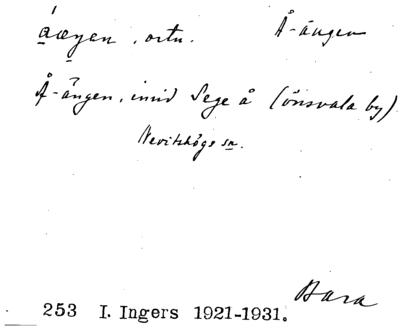 áæŋen, ortn. Å-ängen
Å-ängen, invid Sege å (Önsvala by)
Nevitshögs sn.
Bara
253 I. Ingers 1921-1931.